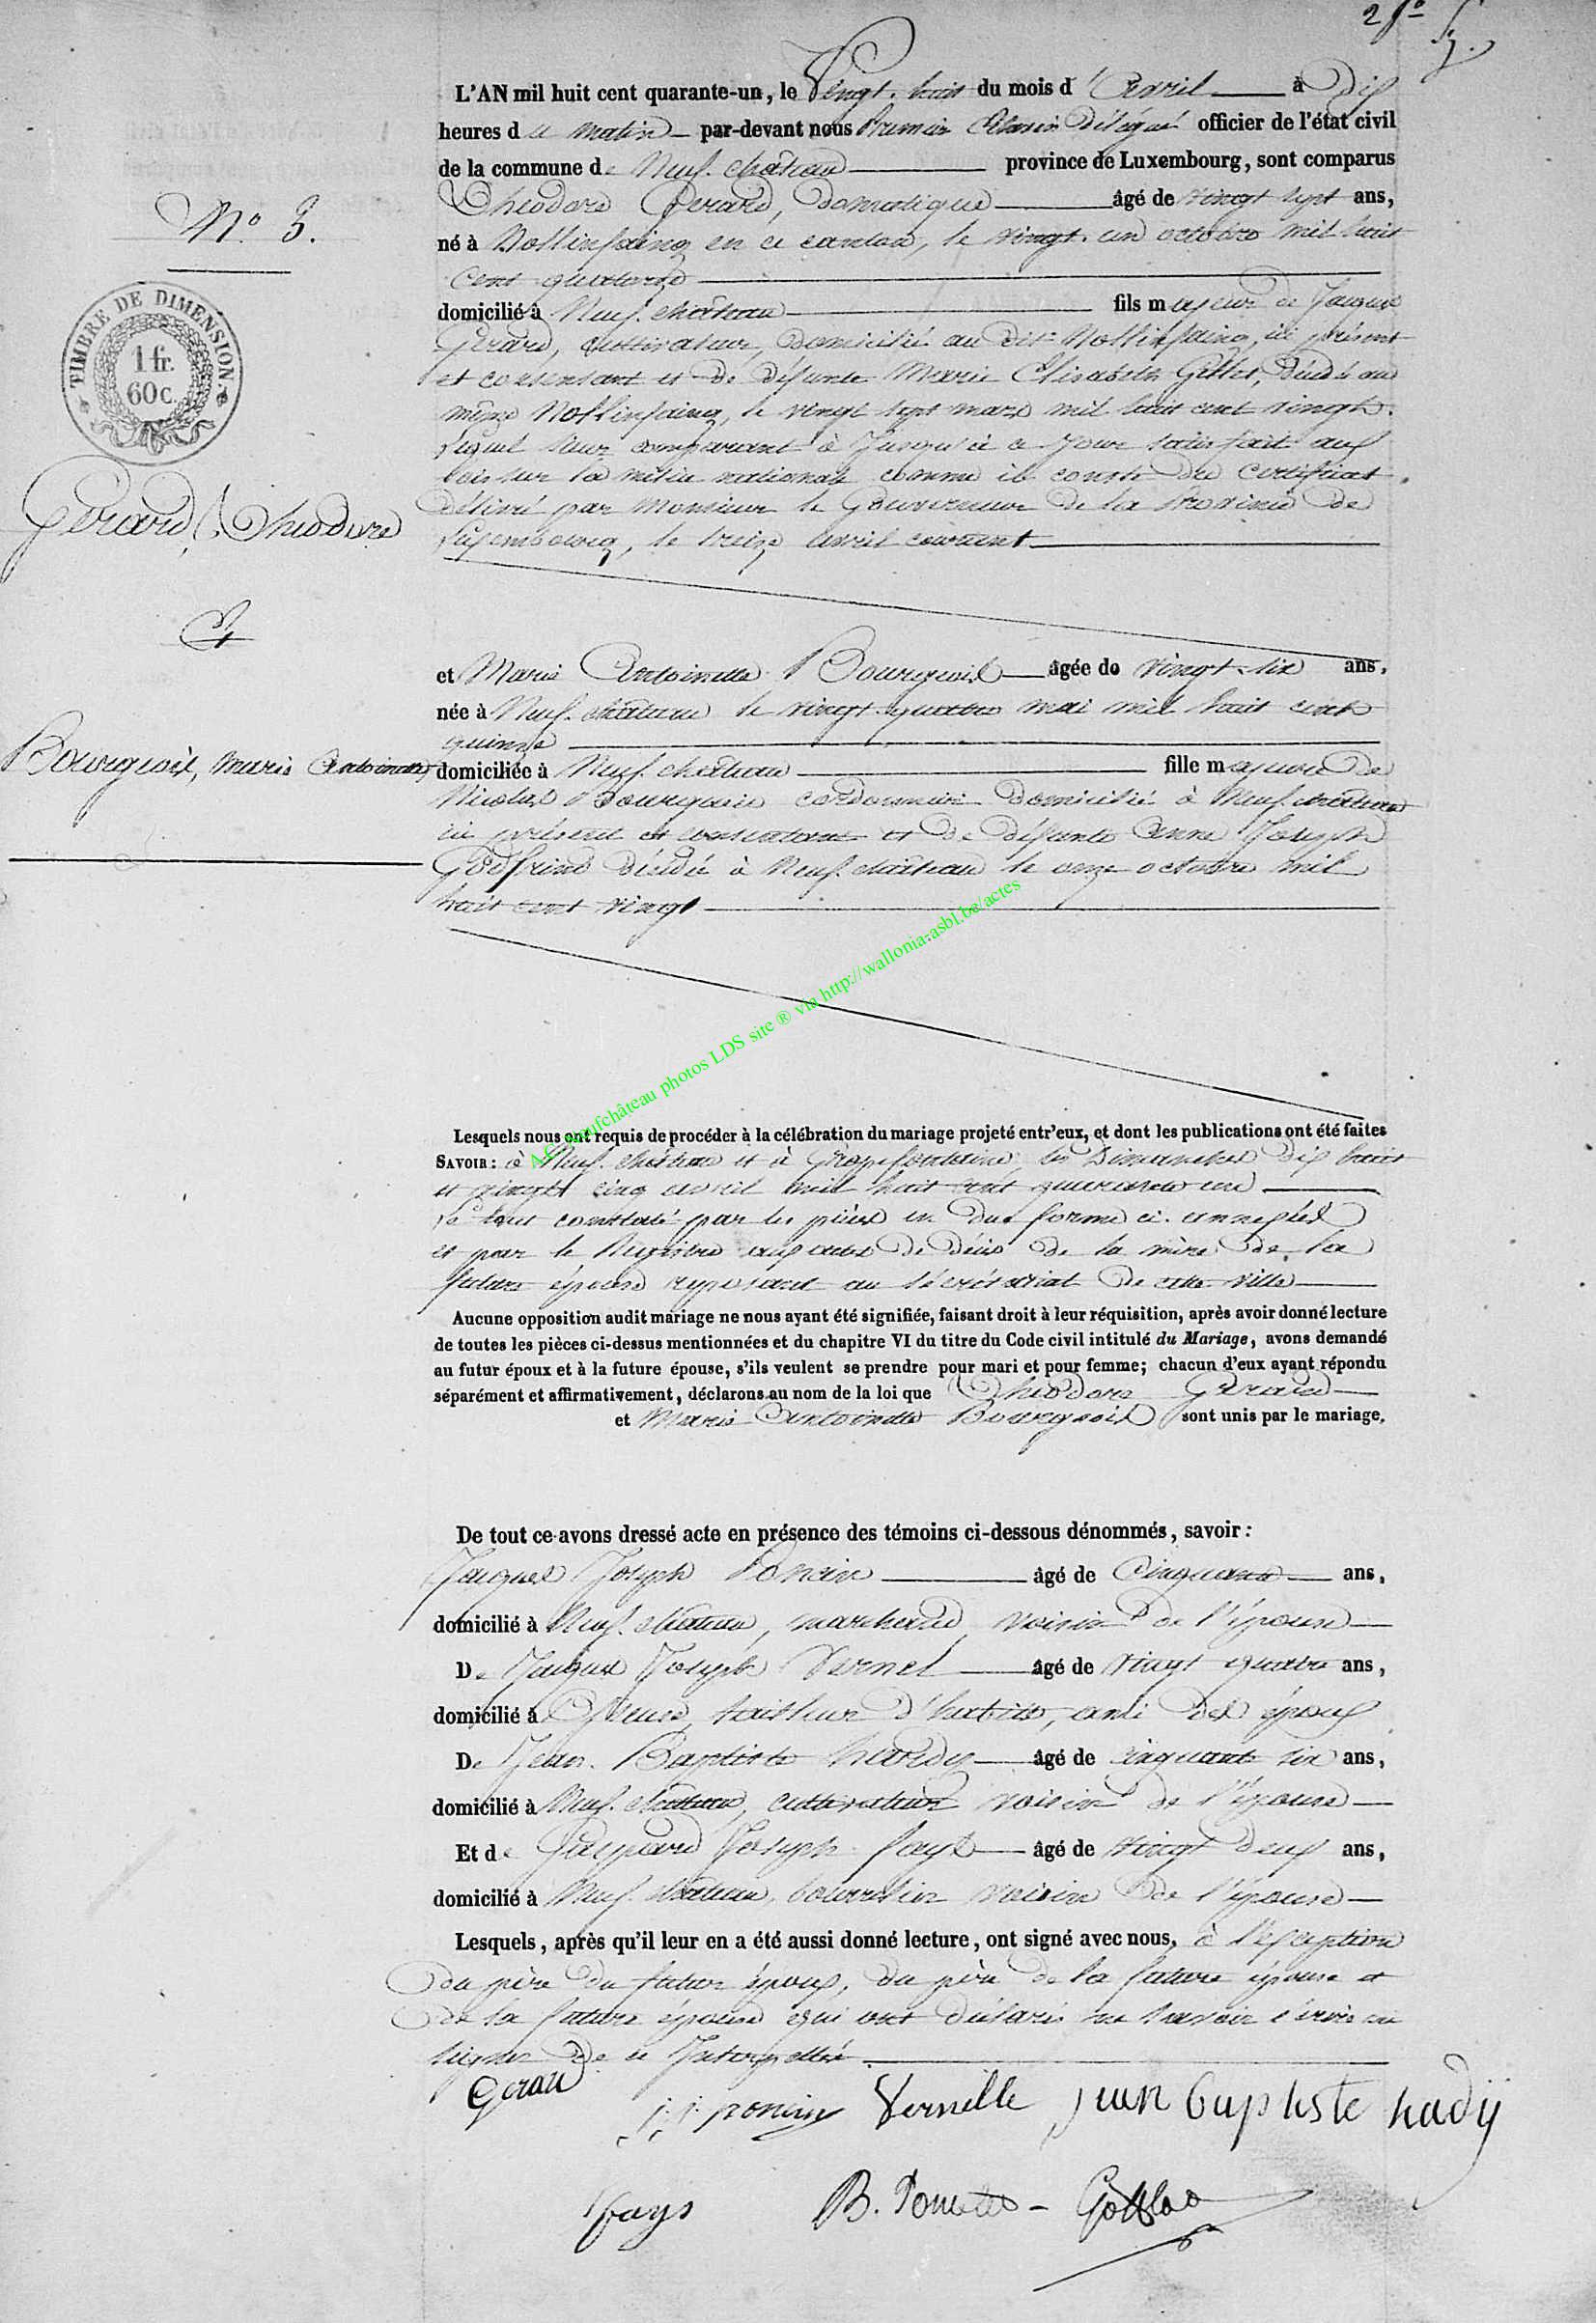 L'AN mil huit cent quarante-un, le Vingt-huit du mois d'Avril à Dix
heures du matin par-devant nous Premier Echevin Délégué officier de l'état civil
de la commune de Neuf-château province de Luxembourg, sont comparus
Théodore Gerard, Domestique âgé de vingt sept ans,
né à Nollinfaing en ce canton, le vingt-un octobre mil huit
cent quatorze
domicilié à Neuf-château fils majeur de Jacques
Gerard, Cultivateur, domicilié au dit Nollinfaing, ici présent
et consentant et de défunte Marie Elisabeth Gillet, décédée au
même Nollinfaing, le vingt sept mars mil huit cent vingt.
Lequel Sieur comparant à Jusqu'à ce Jour satisfait aux
lois sur la milice nationale comme il conste du Certificat
délivré par Monsieur le Gouverneur de la Province de
Luxembourg, le treize avril courant
N° 3.
TIMBRE DE DIMENSION.
1 fr.
60 c.
Gerard, Théodore
&
Bourgeois, Marie Antoinette
et Marie Antoinette Bourgeois âgée de vingt-six ans,
née à Neuf-château le vingt-quatre mai mil huit cent
quinze
domiciliée à Neuf-château fille majeure de
Nicolas Bourgeois cordonnier domicilié à Neuf-château
ici présent et consentant et de défunte Anne Joseph
Godfrind décédée à Neuf-château le onze octobre mil
huit cent vingt
A.C. Neufchâteau photos LDS site ® via http://wallonia-asbl.be/actes
Lesquels nous ont requis de procéder à la célébration du mariage projeté entr'eux, et dont les publications ont été faites
SAVOIR: à Neuf-château et à Grapfontaine, les Dimanches dix huit
et vingt cinq avril mil huit cent quarante un
le tout constaté par les pièces en due forme ci-annexées
et par le Registre aux actes de décès de la mère de la
future épouse reposant au Secrétariat de cette ville
Aucune opposition audit mariage ne nous ayant été signifiée, faisant droit à leur réquisition, après avoir donné lecture
de toutes les pièces ci-dessus mentionnées et du chapitre VI du titre du Code civil intitulé du Mariage, avons demandé
au futur époux et à la future épouse, s'ils veulent se prendre pour mari et pour femme; chacun d'eux ayant répondu
séparément et affirmativement, déclarons au nom de la loi que Théodore Gerard
et Marie Antoinette Bourgeois sont unis par le mariage.
De tout ce avons dressé acte en présence des témoins ci-dessous dénommés, savoir:
Jacques Joseph Poncin âgé de Cinquante ans,
domicilié à Neuf-château, marchand, voisin de l'épouse
De Jacques Joseph Vernel âgé de vingt quatre ans,
domicilié à tailleur d'habits, ami des époux
De Jean-Baptiste hardy âgé de cinquante six ans,
domicilié à Neuf-château, cultivateur voisin de l'épouse
Et de Gaspard Joseph fays âgé de vingt deux ans,
domicilié à Neuf-château, bourrelier voisin de l'épouse
Lesquels, après qu'il leur en a été aussi donné lecture, ont signé avec nous, à l'exception
du père du futur époux, du père de la future épouse et
de la future épouse qui ont déclaré ne savoir écrire ni
signer de ce Interpellés
Gerard
J. J. poncin Vernelle jean baptiste hadÿ
fays